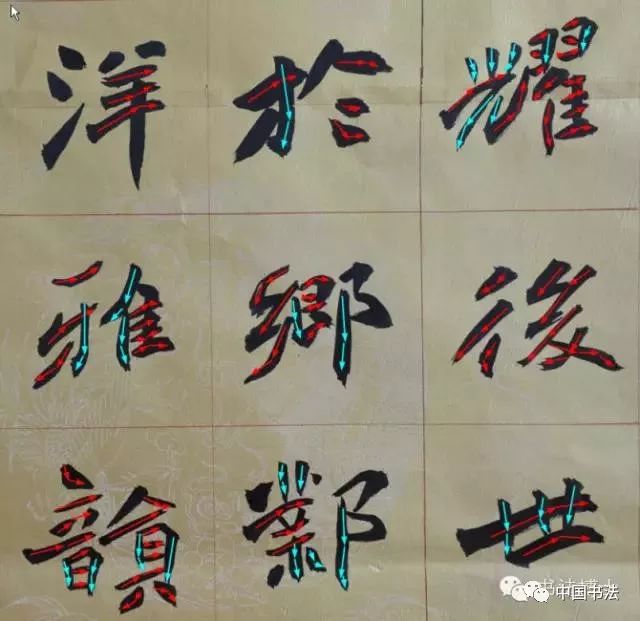 耀後世
於鄉鄴
洋雅韻
中国书法